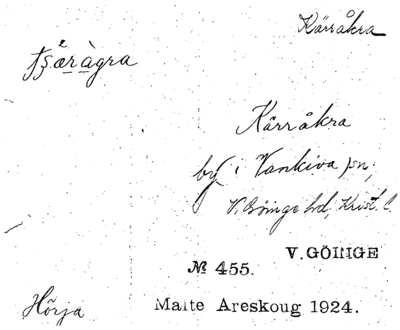 Kärråkra
tʂæ̀ràgra
Kärråkra
by i Vankiva sn,
V. Göinge hd, Krist. l.
V. GÖINGE
№ 455.
Hörja
Malte Areskoug 1924.